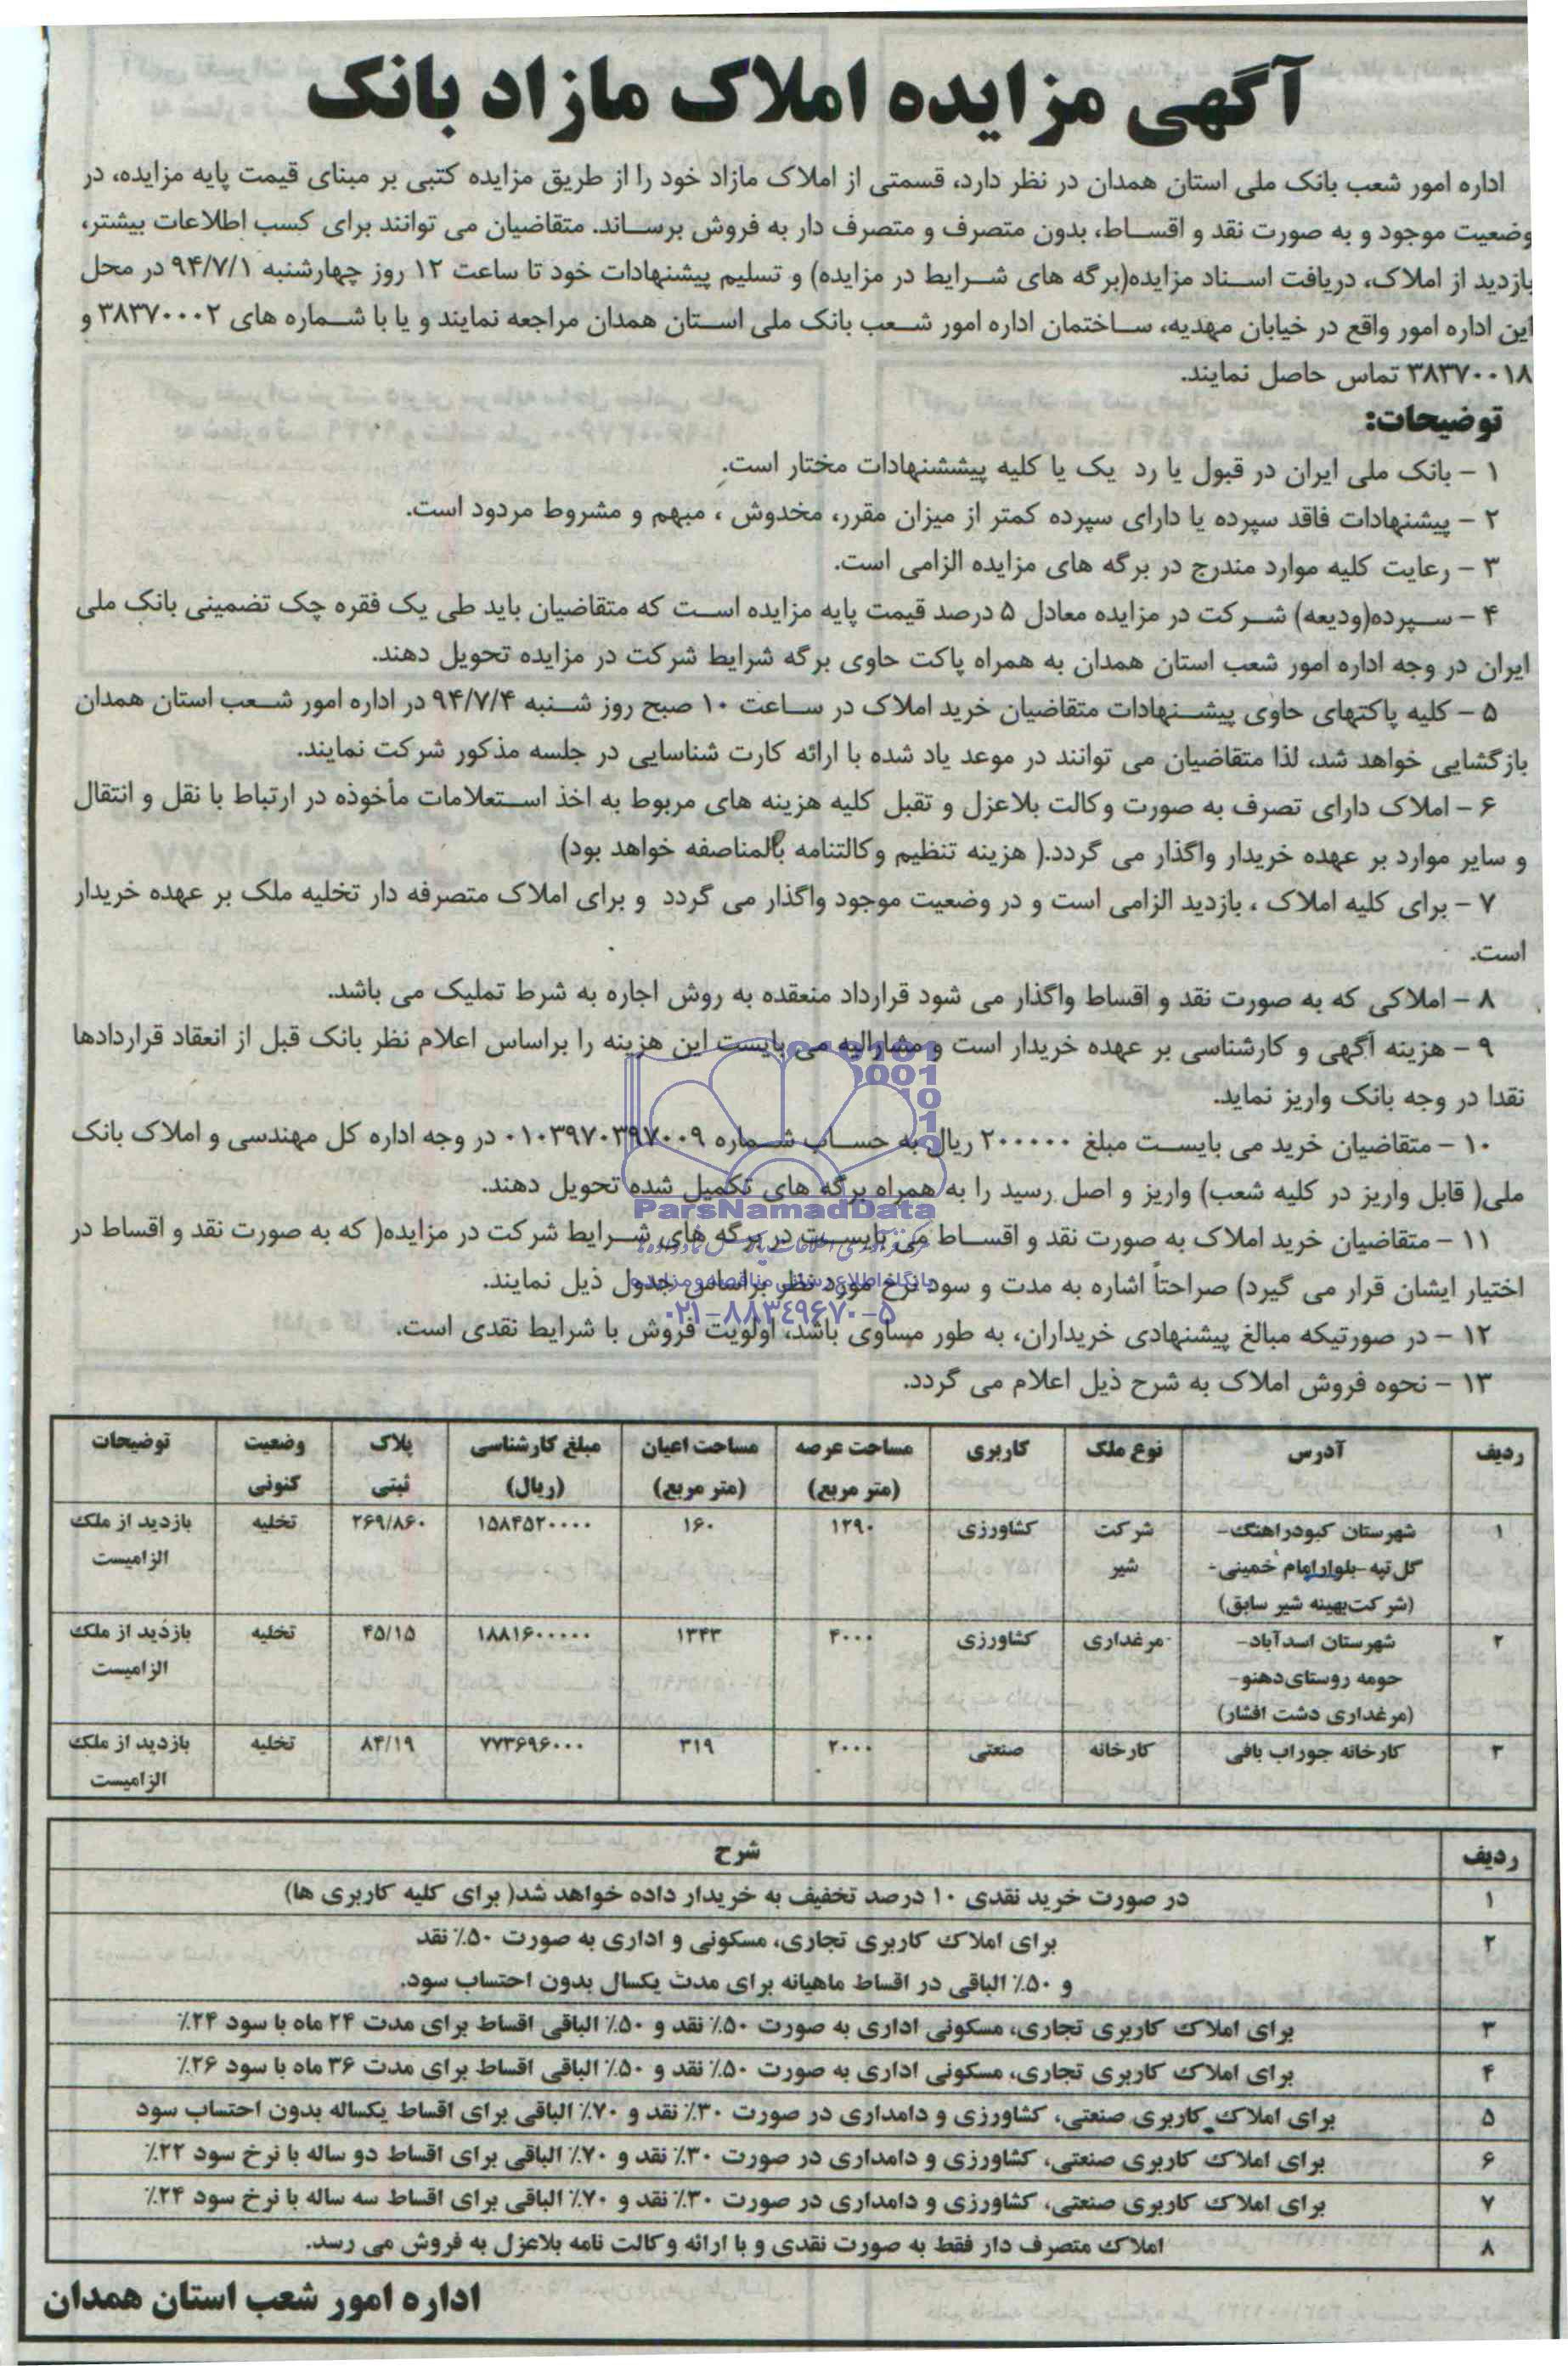 آگهی مزایده املاک مازاد بانک
اداره امور شعب بانک ملی استان همدان در نظر دارد، قسمتی از املاک مازاد خود را از طریق مزایده کتبی بر مبنای قیمت پایه مزایده، در
وضعیت موجود و به صورت نقد و اقساط، بدون متصرف و متصرف دار به فروش برساند. متقاضیان می توانند برای کسب اطلاعات بیشتر،
بازدید از املاک، دریافت اسناد مزایده(برگه های شرایط در مزایده) و تسلیم پیشنهادات خود تا ساعت ۱۲ روز چهارشنبه ۹۴/۷/۱ در محل
این اداره امور واقع در خیابان مهدیه، ساختمان اداره امور شعب بانک ملی استان همدان مراجعه نمایند و یا با شماره های ۳۸۳۷۰۰۰۲ و
۳۸۳۷۰۰۱۸ تماس حاصل نمایند.
توضیحات:
۱ - بانک ملی ایران در قبول یا رد یک یا کلیه پیششنهادات مختار است.
۲ - پیشنهادات فاقد سپرده یا دارای سپرده کمتر از میزان مقرر، مخدوش ، مبهم و مشروط مردود است.
۳ - رعایت کلیه موارد مندرج در برگه های مزایده الزامی است.
۴ - سپرده(ودیعه) شرکت در مزایده معادل ۵ درصد قیمت پایه مزایده است که متقاضیان باید طی یک فقره چک تضمینی بانک ملی
ایران در وجه اداره امور شعب استان همدان به همراه پاکت حاوی برگه شرایط شرکت در مزایده تحویل دهند.
۵ - کلیه پاکتهای حاوی پیشنهادات متقاضیان خرید املاک در ساعت ۱۰ صبح روز شنبه ۹۴/۷/۴ در اداره امور شعب استان همدان
بازگشایی خواهد شد، لذا متقاضیان می توانند در موعد یاد شده با ارائه کارت شناسایی در جلسه مذکور شرکت نمایند.
۶ - املاک دارای تصرف به صورت وکالت بلاعزل و تقبل کلیه هزینه های مربوط به اخذ استعلامات مأخوذه در ارتباط با نقل و انتقال
و سایر موارد بر عهده خریدار واگذار می گردد.( هزینه تنظیم وکالتنامه بالمناصفه خواهد بود)
۷ - برای کلیه املاک ، بازدید الزامی است و در وضعیت موجود واگذار می گردد و برای املاک متصرفه دار تخلیه ملک بر عهده خریدار
است.
۸ - املاکی که به صورت نقد و اقساط واگذار می شود قرارداد منعقده به روش اجاره به شرط تملیک می باشد.
۹ - هزینه آگهی و کارشناسی بر عهده خریدار است و مشارالیه می بایست این هزینه را براساس اعلام نظر بانک قبل از انعقاد قراردادها
نقدا در وجه بانک واریز نماید.
۱۰ - متقاضیان خرید می بایست مبلغ ۲۰۰۰۰۰ ریال به حساب شماره ۰۱۰۳۹۷۰۳۹۷۰۰۹ در وجه اداره کل مهندسی و املاک بانک
ملی( قابل واریز در کلیه شعب) واریز و اصل رسید را به همراه برگه های تکمیل شده تحویل دهند.
ParsNamadData
۱۱ - متقاضیان خرید املاک به صورت نقد و اقساط می بایست در برگه های شرایط شرکت در مزایده( که به صورت نقد و اقساط در
اختیار ایشان قرار می گیرد) صراحتاً اشاره به مدت و سود نرخ مورد نظر براساس جدول ذیل نمایند.
۰۲۱-۸۸۳۴۹۶۷۰-۵
۱۲ - در صورتیکه مبالغ پیشنهادی خریداران، به طور مساوی باشد، اولویت فروش با شرایط نقدی است.
۱۳ - نحوه فروش املاک به شرح ذیل اعلام می گردد.
ردیف آدرس نوع ملک کاربری مساحت عرصه (متر مربع) مساحت اعیان (متر مربع) مبلغ کارشناسی (ریال) پلاک ثبتی وضعیت کنونی توضیحات
۱ شهرستان کبودراهنگ- گل تپه-بلوارامام خمینی- (شرکت بهینه شیر سابق) شرکت شیر کشاورزی ۱۲۹۰ ۱۶۰ ۱۵۸۴۵۲۰۰۰۰ ۲۶۹/۸۶۰ تخلیه بازدید از ملک الزامیست
۲ شهرستان اسدآباد- حومه روستای دهنو- (مرغداری دشت افشار) مرغداری کشاورزی ۴۰۰۰ ۱۳۴۳ ۱۸۸۱۶۰۰۰۰۰ ۴۵/۱۵ تخلیه بازدید از ملک الزامیست
۳ کارخانه جوراب بافی کارخانه صنعتی ۲۰۰۰ ۳۱۹ ۷۷۳۶۹۶۰۰۰ ۸۴/۱۹ تخلیه بازدید از ملک الزامیست
ردیف شرح
۱ در صورت خرید نقدی ۱۰ درصد تخفیف به خریدار داده خواهد شد( برای کلیه کاربری ها)
۲ برای املاک کاربری تجاری، مسکونی و اداری به صورت ۵۰٪ نقد
و ۵۰٪ الباقی در اقساط ماهیانه برای مدت یکسال بدون احتساب سود.
۳ برای املاک کاربری تجاری، مسکونی اداری به صورت ۵۰٪ نقد و ۵۰٪ الباقی اقساط برای مدت ۲۴ ماه با سود ۲۴٪
۴ برای املاک کاربری تجاری، مسکونی اداری به صورت ۵۰٪ نقد و ۵۰٪ الباقی اقساط برای مدت ۳۶ ماه با سود ۲۶٪
۵ برای املاک کاربری صنعتی، کشاورزی و دامداری در صورت ۳۰٪ نقد و ۷۰٪ الباقی برای اقساط یکساله بدون احتساب سود
۶ برای املاک کاربری صنعتی، کشاورزی و دامداری در صورت ۳۰٪ نقد و ۷۰٪ الباقی برای اقساط دو ساله با نرخ سود ۲۲٪
۷ برای املاک کاربری صنعتی، کشاورزی و دامداری در صورت ۳۰٪ نقد و ۷۰٪ الباقی برای اقساط سه ساله با نرخ سود ۲۴٪
۸ املاک متصرف دار فقط به صورت نقدی و با ارائه وکالت نامه بلاعزل به فروش می رسد.
اداره امور شعب استان همدان